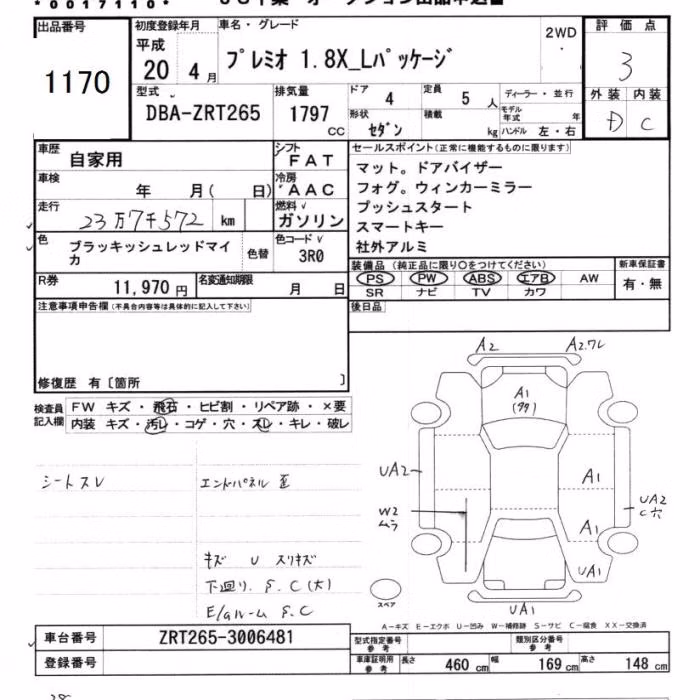 *0017110*
出品番号
1170
初度登録年月
平成
20 4月
車名・グレード
プレミオ 1.8X_Lパッケージ
2WD
評価点
3
外装 内装
D C
型式
DBA-ZRT265
排気量
1797 CC
ドア 4
定員 5人
形状 セダン
積載 kg
ディーラー・並行
モデル年式 年
ハンドル 左・右
車歴
自家用
シフト
FAT
車検
年 月( 日)
冷房
AAC
走行
23万7千572 km
燃料
ガソリン
色
ブラッキッシュレッドマイカ
色替
色コード
3R0
R券
11,970円
名変通知期限
月 日
セールスポイント(正常に機能するものに限ります)
マット。ドアバイザー
フォグ。ウィンカーミラー
プッシュスタート
スマートキー
社外アルミ
装備品(純正品に限り○をつけてください)
PS PW ABS エアB AW
SR ナビ TV カワ
新車保証書
有・無
後日品
注意事項申告欄(不具合内容等は具体的に記入して下さい)
修復歴 有〔箇所 〕
検査員記入欄
FW キズ・飛石・ヒビ割・リペア跡・×要
内装 キズ・汚レ・コゲ・穴・スレ・キレ・破レ
シートスレ
エンドパネル 歪
キズ U スリキズ
下回り. S.C(大)
E/gルーム S.C
A2
A2.ワレ
A1
UA2
A1
UA2
C穴
W2
ムラ
A1
UA1
UA1
スペア
A-キズ E-エクボ U-凹み W-補修跡 S-サビ C-腐食 XX-交換済
車台番号
ZRT265-3006481
登録番号
型式指定番号 参考
類別区分番号 参考
車庫証明用 参考
長さ 460cm
幅 169cm
高さ 148cm